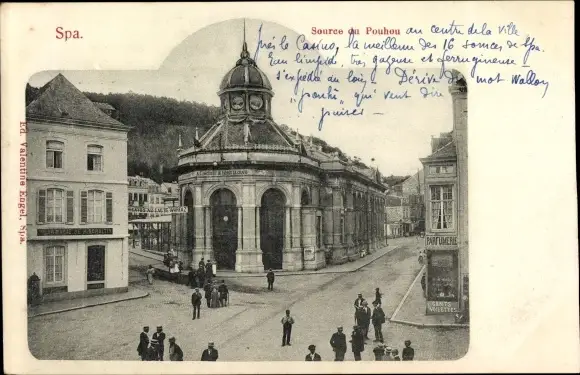 Spa.
Source du Pouhou
au centre de la ville
près le Casino, la meilleure des 16 sources de Spa.
Eau limpide, très gazeuse et ferrugineuse
s'expédie au loin. Dérivé du mot Wallon
"pouhi" qui veut dire
puiser -
Ed. Valentine Engel, Spa.
PARFUMERIE
GANTS
VOILETTES